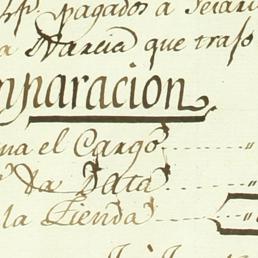 4p. pagados a
a Narcia que trajo
mparacion
ma el Cargo ........ "
da Data ........ "
la Tienda ........ "